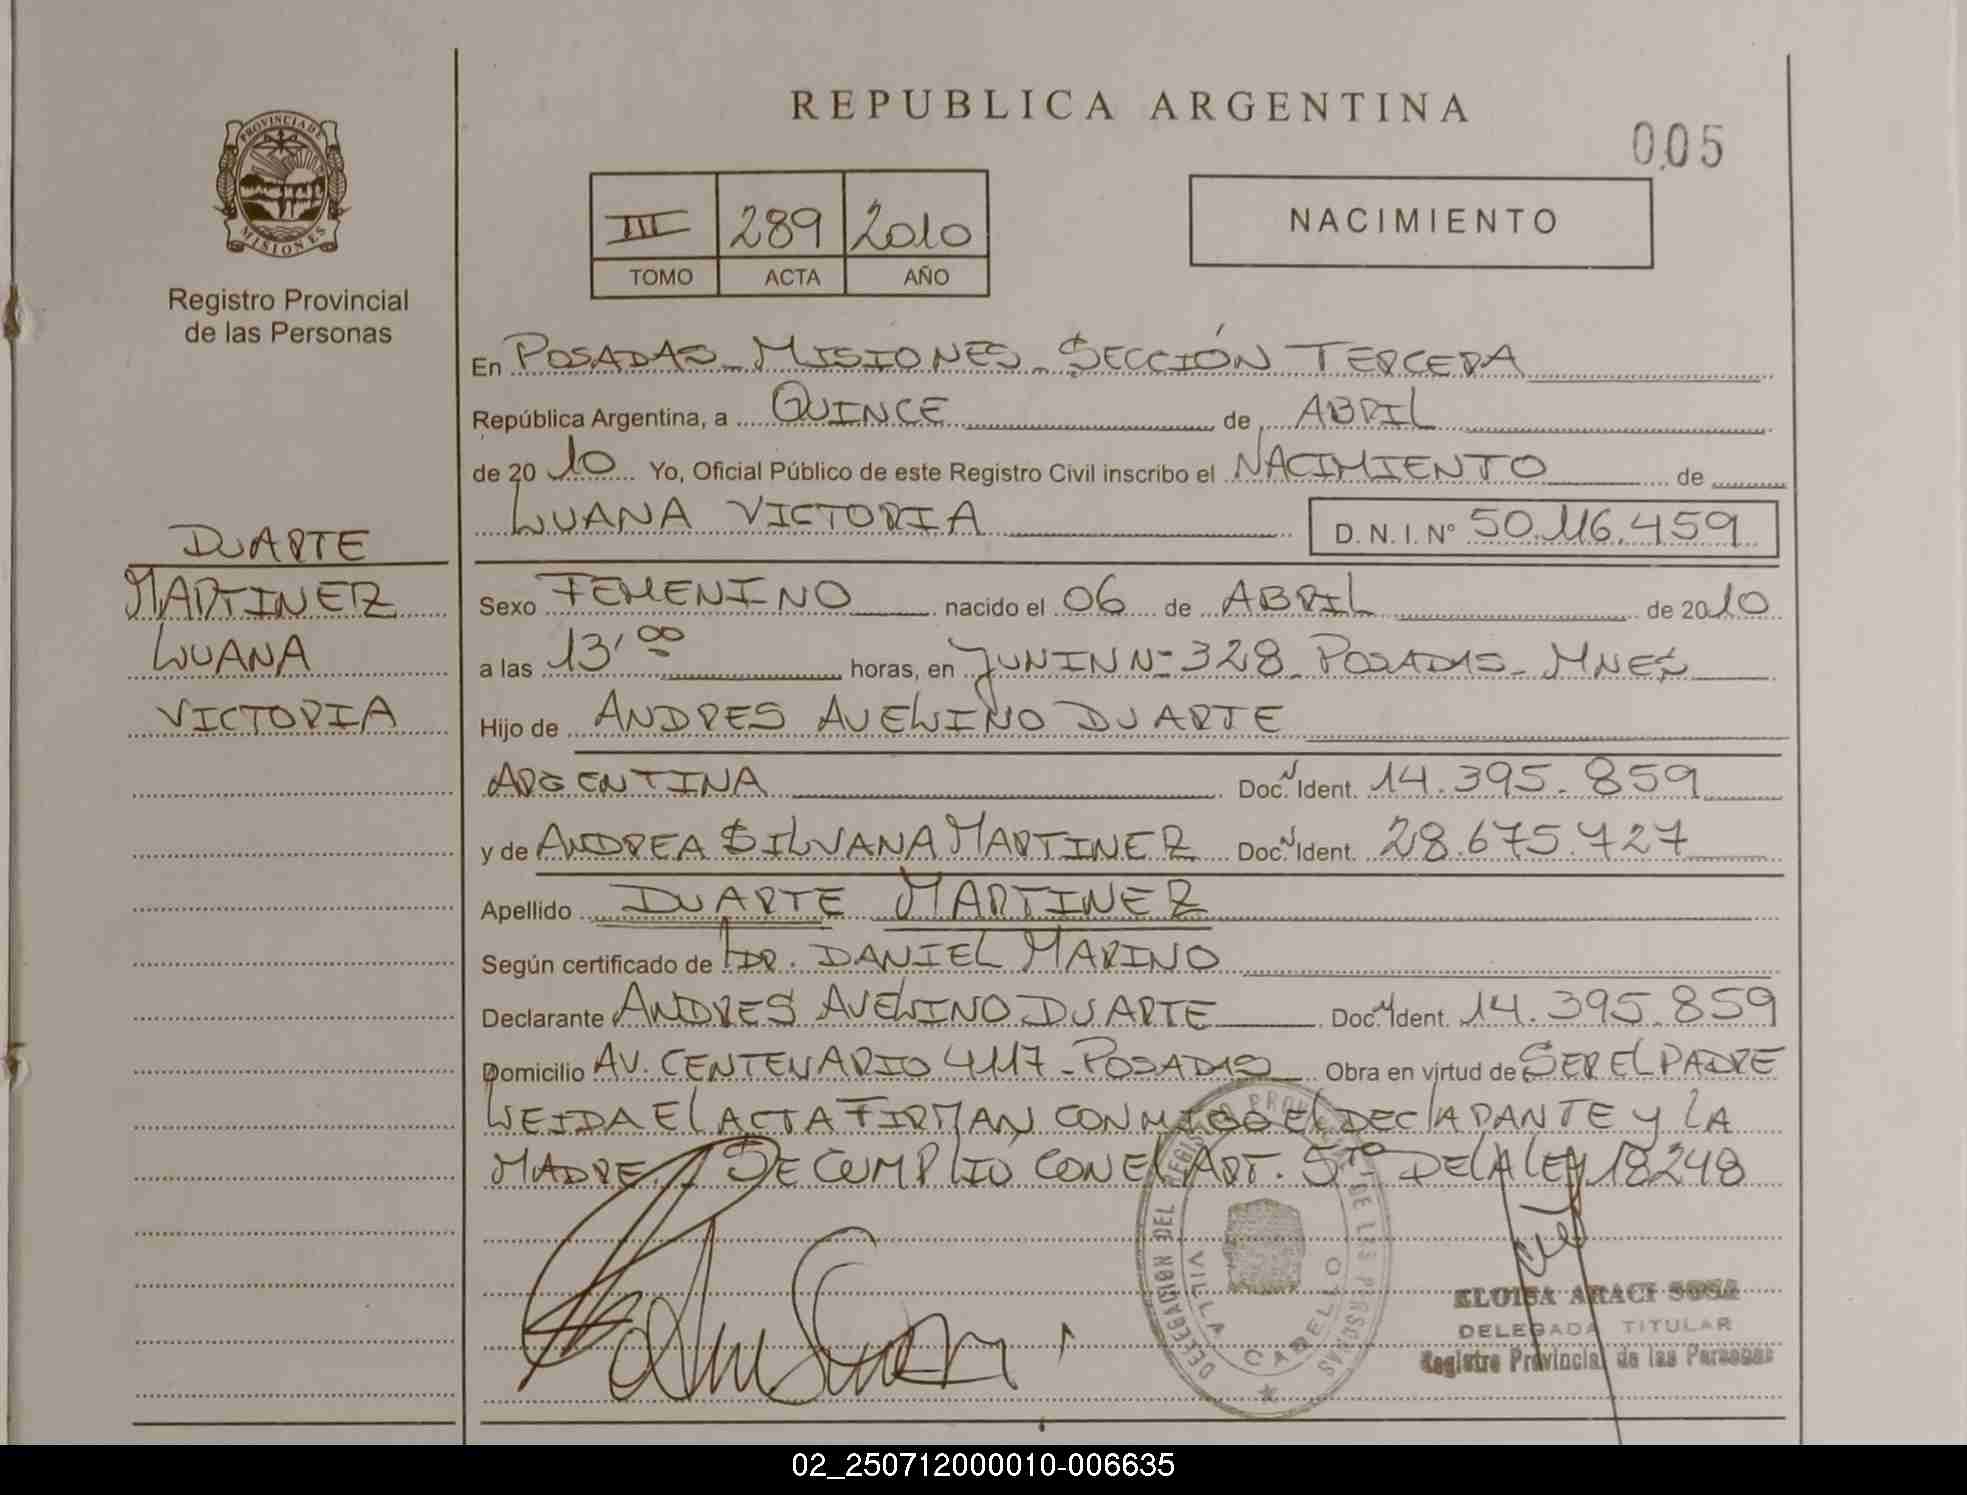 REPUBLICA ARGENTINA
005
PROVINCIA DE MISIONES
Registro Provincial
de las Personas
III 289 2010
TOMO ACTA AÑO
NACIMIENTO
En POSADAS - MISIONES - SECCIÓN TERCERA
República Argentina, a QUINCE de ABRIL
de 2010 Yo, Oficial Público de este Registro Civil inscribo el NACIMIENTO de
LUANA VICTORIA D. N. I. N° 50.116.459
DUARTE
MARTINEZ
LUANA
VICTORIA
Sexo FEMENINO nacido el 06 de ABRIL de 2010
a las 13'00 horas, en JUNIN Nº 328 - POSADAS - MNES
Hijo de ANDRES AVELINO DUARTE
ARGENTINA Doc. N Ident. 14.395.859
y de ANDREA SILVANA MARTINEZ Doc. N Ident. 28.675.727
Apellido DUARTE MARTINEZ
Según certificado de DR. DANIEL MARINO
Declarante ANDRES AVELINO DUARTE Doc. N Ident. 14.395.859
Domicilio AV. CENTENARIO 4117 - POSADAS Obra en virtud de SER EL PADRE
LEIDA EL ACTA FIRMAN CONMIGO EL DECLARANTE Y LA
MADRE. SE CUMPLIÓ CON EL ART. 5TO DE LA LEY 18248
DELEGACION DEL REGISTRO PROVINCIAL DE LAS PERSONAS
VILLA CABELLO
ELOISA ARACI SOSA
DELEGADA TITULAR
Registro Provincial de las Personas
02_250712000010-006635